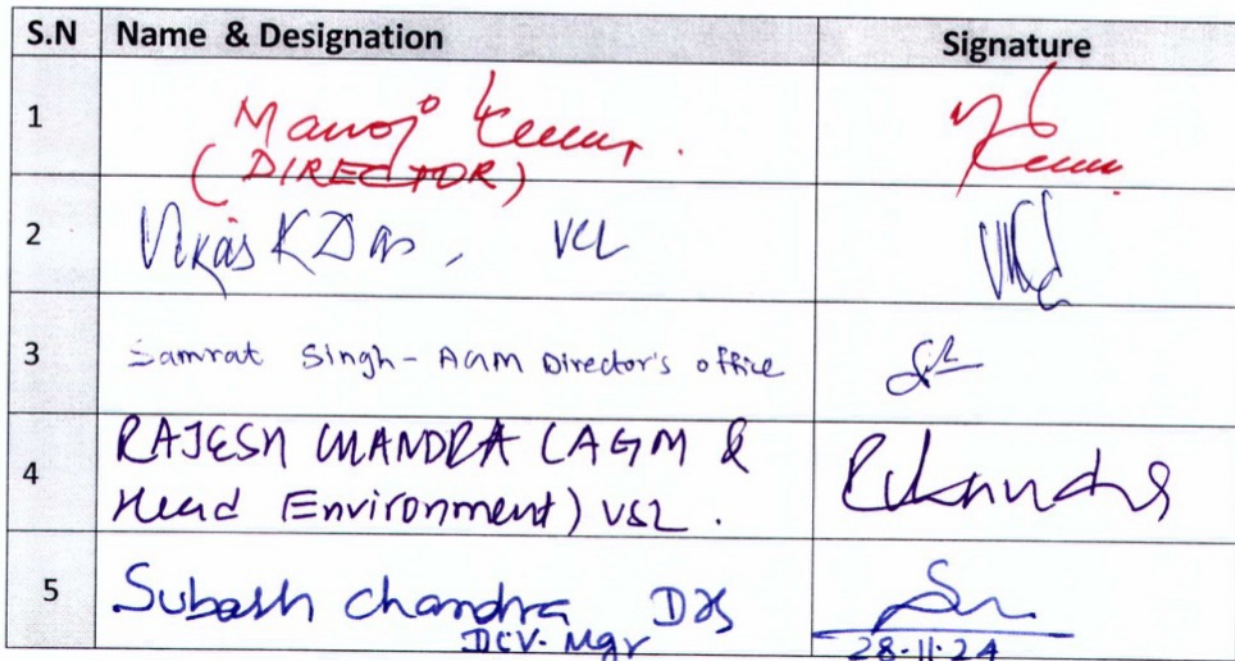 S.N Name & Designation Signature
1 Manoj Kumar.
(DIRECTOR)
2 Vikas K Das, VCL
3 Samrat Singh - AGM Director's office
4 RAJESH CHANDRA (AGM &
Head Environment) VSL. RChandra
5 Subash Chandra
Dev. Mgr
28.11.24